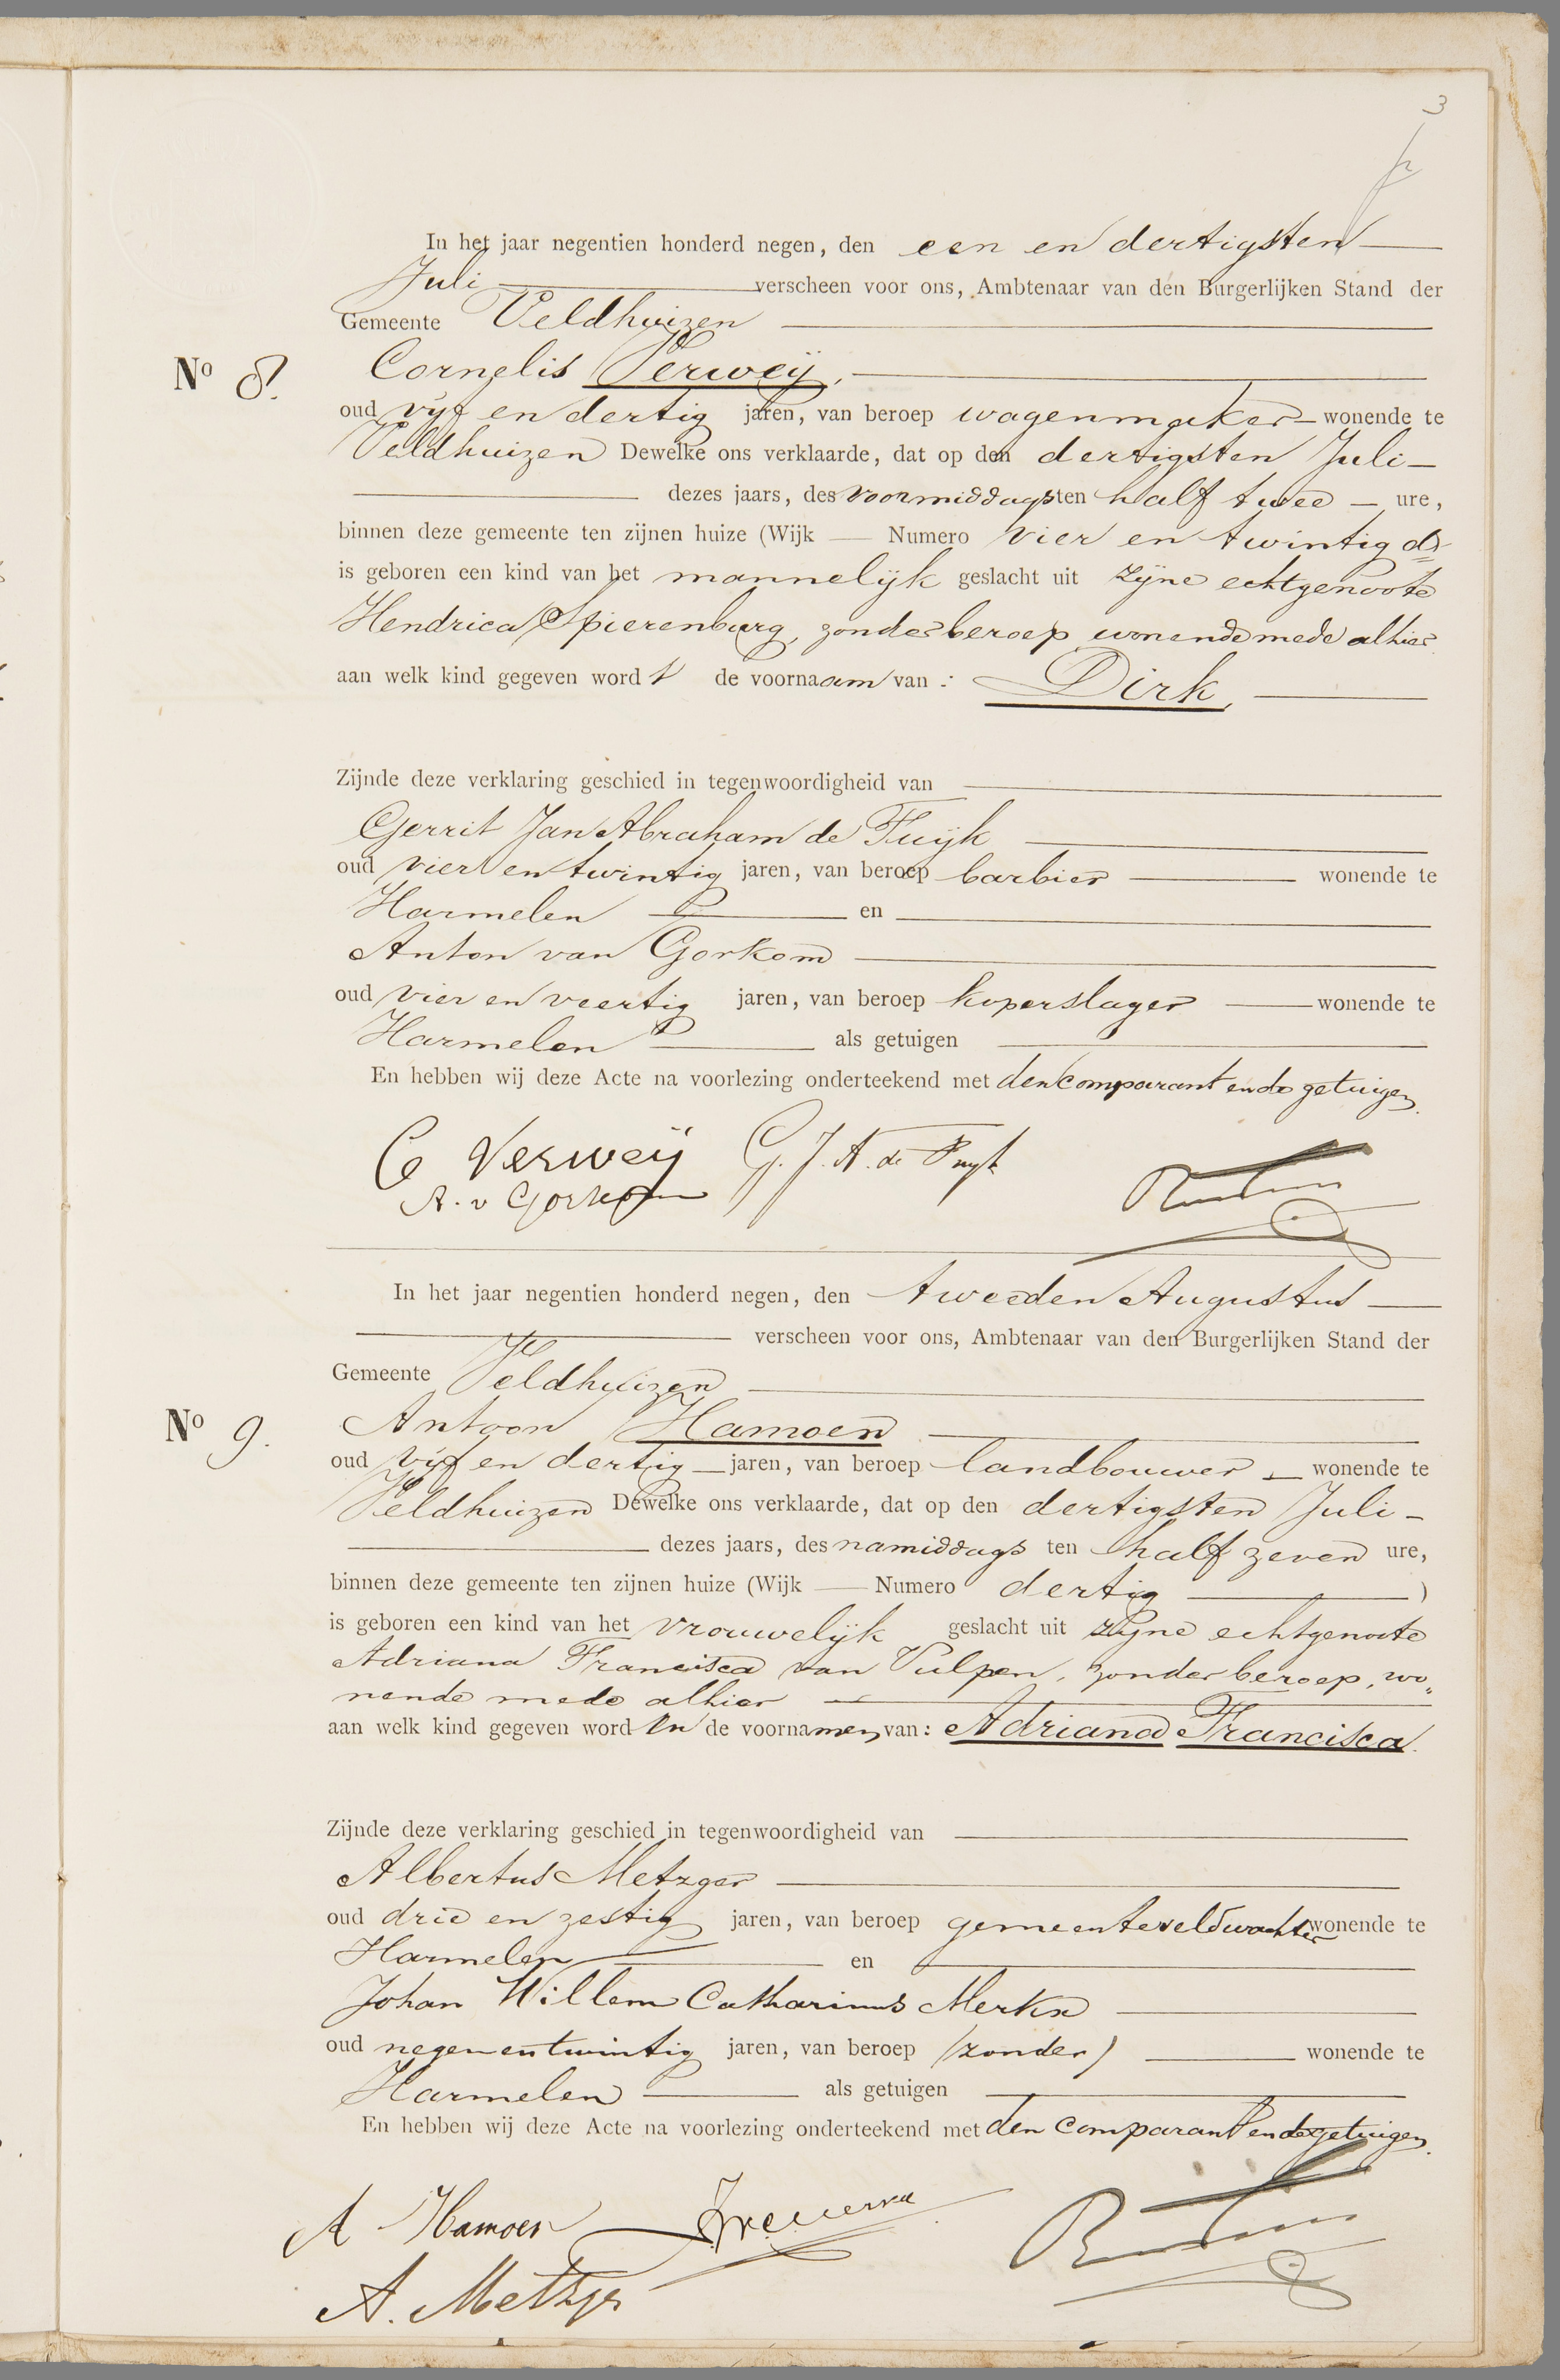 3
In het jaar negentien honderd negen, den een en dertigsten
Juli verscheen voor ons, Ambtenaar van den Burgerlijken Stand der
Gemeente Veldhuizen
No 8. Cornelis Verweij,
oud vijf en dertig jaren, van beroep wagenmaker wonende te
Veldhuizen Dewelke ons verklaarde, dat op den dertigsten Juli
dezes jaars, des voormiddags ten half twee ure,
binnen deze gemeente ten zijnen huize (Wijk Numero vier en twintig d)
is geboren een kind van het mannelijk geslacht uit zijne echtgenoote
Hendrica Spierenburg, zonder beroep wonende mede alhier
aan welk kind gegeven wordt de voornaam van: Dirk,
Zijnde deze verklaring geschied in tegenwoordigheid van
Gerrit Jan Abraham de Fuijk
oud vier en twintig jaren, van beroep barbier wonende te
Harmelen en
Anton van Gorkom
oud vier en veertig jaren, van beroep koperslager wonende te
Harmelen als getuigen
En hebben wij deze Acte na voorlezing onderteekend met den comparant en de getuigen.
C Verweij G. J. A. de Fuyk
A. v Gorkom
In het jaar negentien honderd negen, den tweeden Augustus
verscheen voor ons, Ambtenaar van den Burgerlijken Stand der
Gemeente Veldhuizen
No 9. Antoon Hamoen
oud vijf en dertig jaren, van beroep landbouwer wonende te
Veldhuizen Dewelke ons verklaarde, dat op den dertigsten Juli
dezes jaars, des namiddags ten half zeven ure,
binnen deze gemeente ten zijnen huize (Wijk Numero dertig )
is geboren een kind van het vrouwelijk geslacht uit zijne echtgenoote
Adriana Francisca van Vulpen, zonder beroep, wo„
nende mede alhier
aan welk kind gegeven worden de voornamen van: Adriana Francisca.
Zijnde deze verklaring geschied in tegenwoordigheid van
Albertus Metzger
oud drie en zestig jaren, van beroep gemeenteveldwachter wonende te
Harmelen en
Johan Willem Catharinus Merkx
oud negen en twintig jaren, van beroep (zonder) wonende te
Harmelen als getuigen
En hebben wij deze Acte na voorlezing onderteekend met den comparant en de getuigen.
A Hamoen
A. Metzger